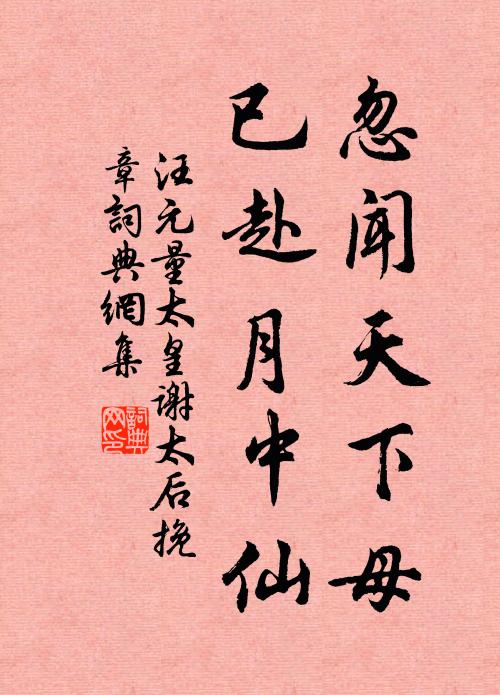 忽闻天下母
已赴月中仙
汪元量太皇谢太后挽
章词典網集
詞典网印